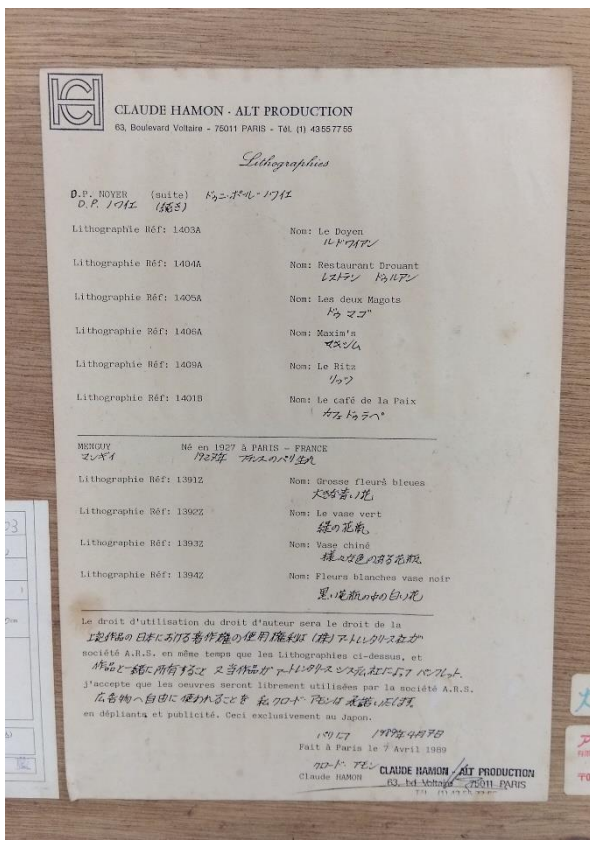 CLAUDE HAMON - ALT PRODUCTION
63, Boulevard Voltaire - 75011 PARIS - Tél. (1) 43 55 77 55
Lithographies
D.P. NOYER (suite) ドゥニ・ポール・ノワイエ
D.P. ノワイエ (続き)
Lithographie Réf: 1403A Nom: Le Doyen
ル ドワイアン
Lithographie Réf: 1404A Nom: Restaurant Drouant
レストラン ドゥルアン
Lithographie Réf: 1405A Nom: Les deux Magots
ドゥ マゴ
Lithographie Réf: 1406A Nom: Maxim's
マキシム
Lithographie Réf: 1409A Nom: Le Ritz
リッツ
Lithographie Réf: 1401B Nom: Le café de la Paix
カフェ ドゥ ラ ペ
MENGUY Né en 1927 à PARIS - FRANCE
マンギイ 1927年 フランスのパリ生れ
Lithographie Réf: 1391Z Nom: Grosse fleurs bleues
大きな青い花
Lithographie Réf: 1392Z Nom: Le vase vert
緑の花瓶
Lithographie Réf: 1393Z Nom: Vase chiné
様々な色のある花瓶
Lithographie Réf: 1394Z Nom: Fleurs blanches vase noir
黒い花瓶の中の白い花
Le droit d'utilisation du droit d'auteur sera le droit de la
上記作品の日本における著作権の使用権利は(株)アートレンタリース社が
société A.R.S. en même temps que les Lithographies ci-dessus, et
作品と一緒に所有すること 又当作品が アートレンタリースシステム社によって パンフレット、
j'accepte que les oeuvres seront librement utilisées par la société A.R.S.
広告物へ自由に使われることを 私 クロード・アモンは 承諾いたします。
en dépliants et publicité. Ceci exclusivement au Japon.
パリにて 1989年4月7日
Fait à Paris le 7 Avril 1989
クロード・アモン
Claude HAMON
CLAUDE HAMON / ALT PRODUCTION
63, bd Voltaire 75011 PARIS